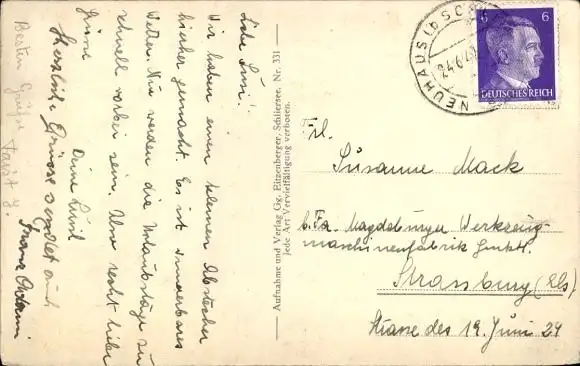 Liebe Susi!
Wir haben einen kleinen Abstecher
hierher gemacht. Es ist wunderbares
Wetter. Nur werden die Urlaubstage zu
schnell vorbei sein. Nun recht liebe
Grüsse
Deine Liesl
Herzlich. Grüsse sendet auch
Franz
Besten Grüße
Aufnahme und Verlag Gg. Eitzenberger, Schliersee. Nr. 331
Jede Art Vervielfältigung verboten.
NEUHAUS (b SCH
24.6.4
6 6
DEUTSCHES REICH
Frl.
Susanne Mack
b. Fa. Magdeburger Werkzeug-
maschinenfabrik GmbH.
Strassburg (Els)
Strasse des 19. Juni 24